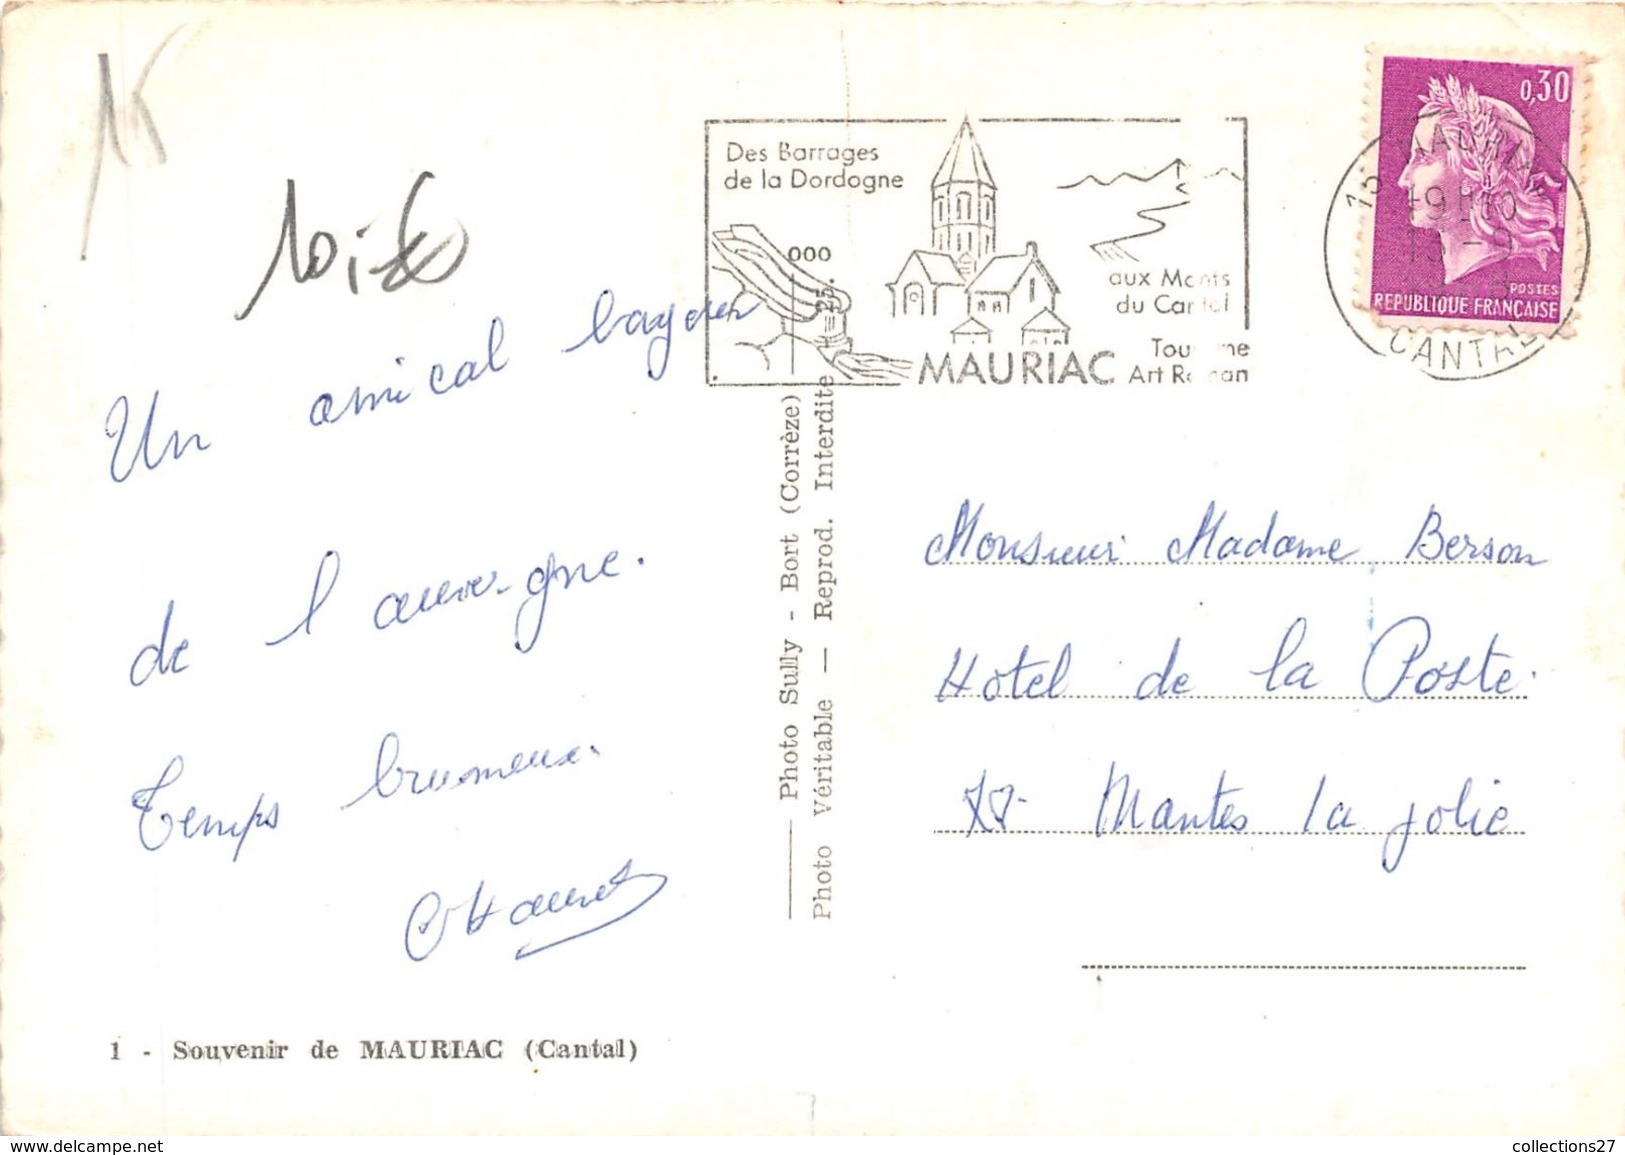 15
Un amical bonjour
de l'auvergne.
Temps brumeux.
1 - Souvenir de MAURIAC (Cantal)
Photo Sully - Bort (Corrèze)
Photo Véritable — Reprod. Interdite
Des Barrages
de la Dordogne
000
aux Monts
du Cantal
Tourisme
Art Roman
MAURIAC
15 MAURIAC
19H10
13-9
CANTAL
0,30
POSTES
REPUBLIQUE FRANÇAISE
Monsieur Madame Berson
Hotel de la Poste.
Mantes la jolie
collections27